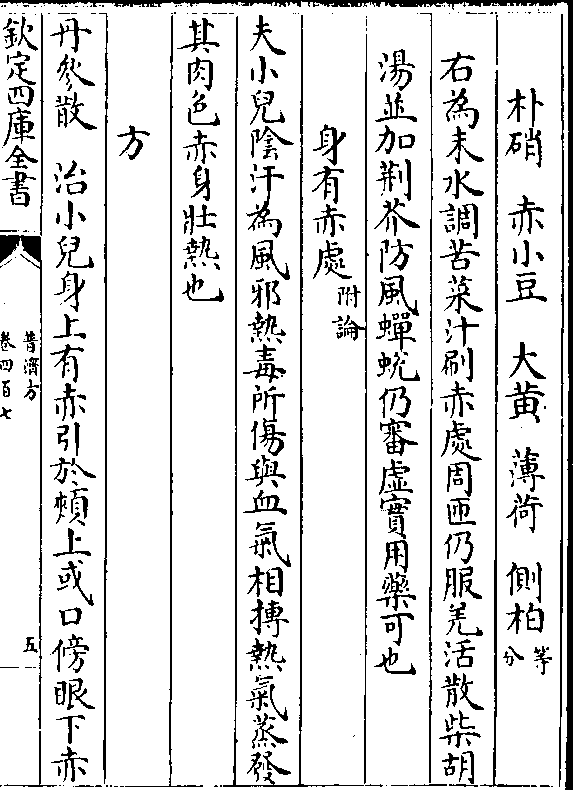 朴硝 赤小豆 大黄 薄荷 側柏等分
右為末水調苦菜汁刷赤處周匝仍服羌活散柴胡
湯並加荆芥防風蟬蛻仍審虛實用藥可也
身有赤處附論
夫小兒陰汗為風邪熱毒所傷與血氣相摶熱氣蒸發
其肉色赤身壯熱也
方
丹參散 治小兒身上有赤引於頰上或口傍眼下赤
欽定四庫全書
普濟方
卷四百七
五